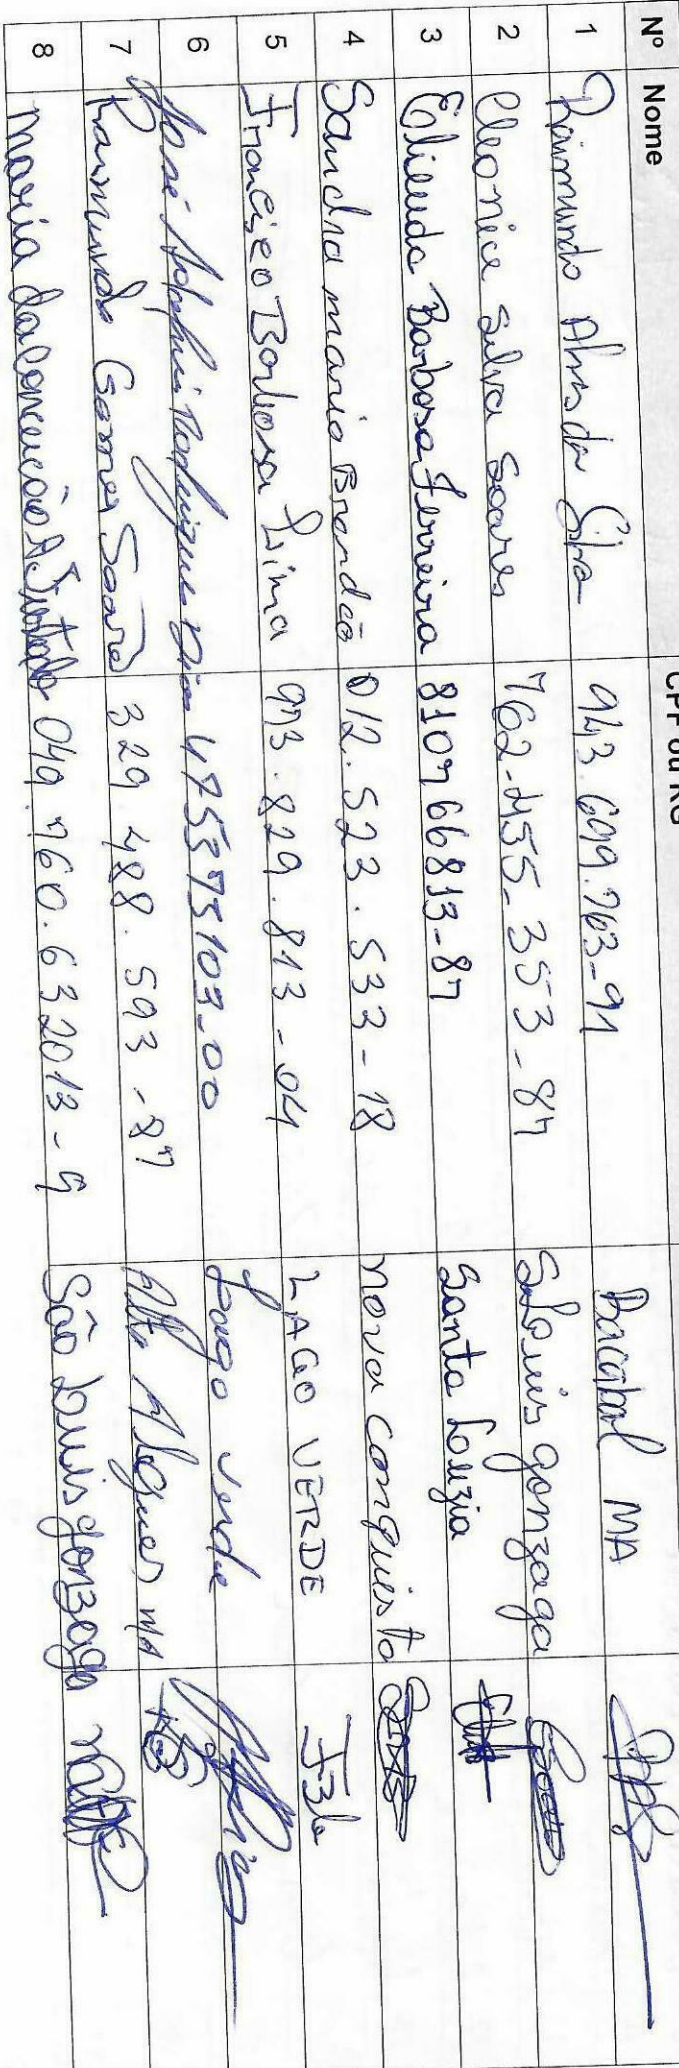 Nº Nome CPF ou RG
1 Raimundo Alves da Silva 943.699.763-91 Bacabal MA
2 Cleonice Silva Soares 762-455-353-87 S. Luis gonzaga
3 Elieuda Barbosa Ferreira 810766813-87 Santa Louzia
4 Sandra maria Brandão 012.523.533-18 nova conquista
5 Francisco Barbosa Lima 973.829.813-04 LAGO VERDE
6 José Rodrigues Dias 475375103-00 Lago verde
7 Raimundo Gomes Soares 329.488.593-87 Alto Alegre MA
8 maria da Conceição A Furtado 049.760.632013-9 São Luis gonzaga